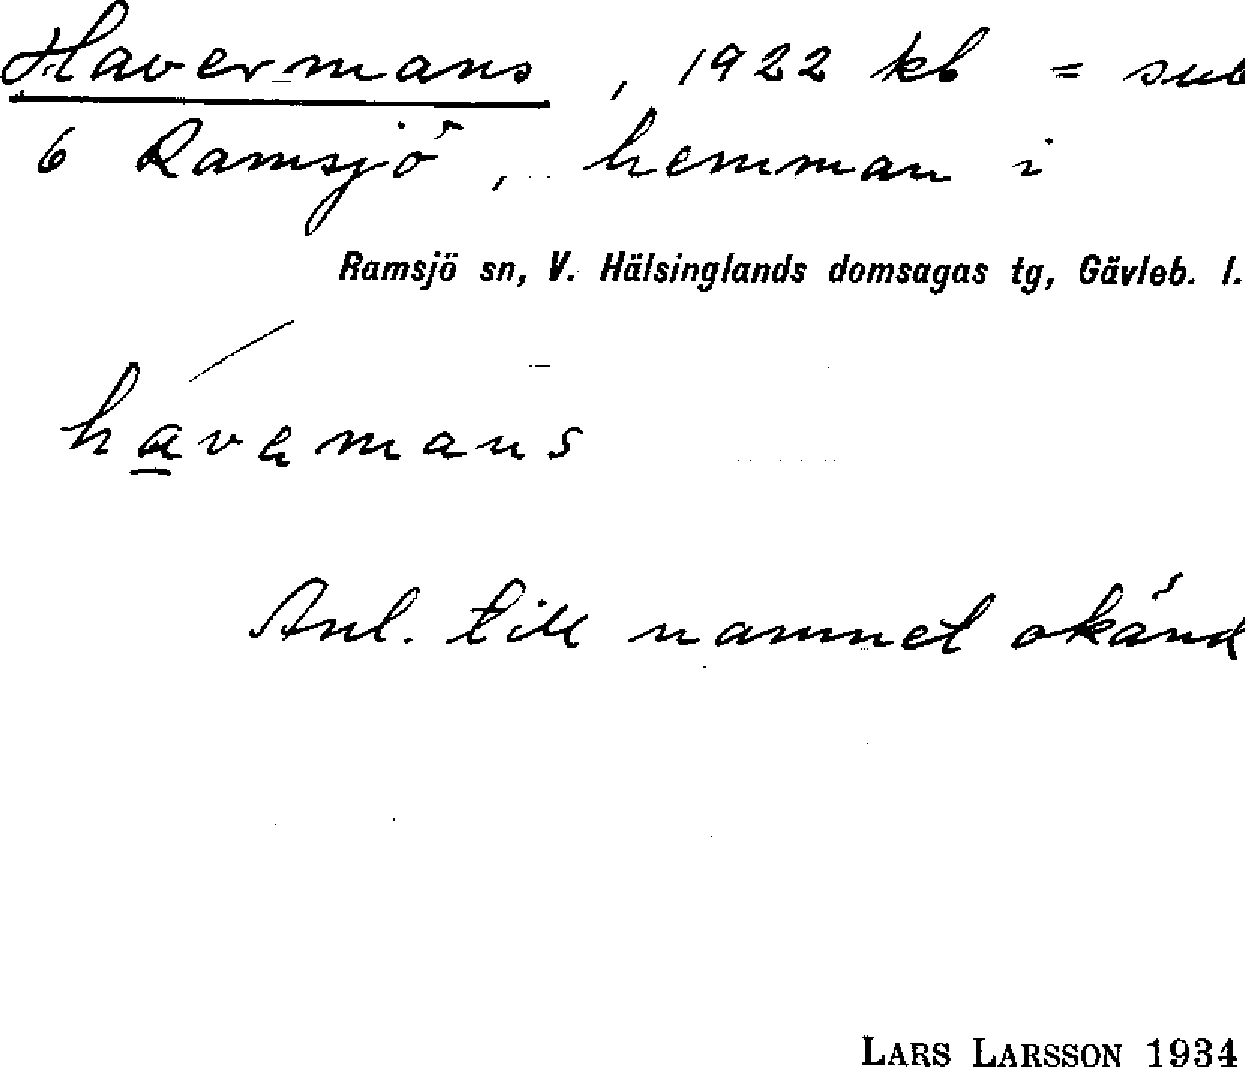 Havermans, 1922 kb = sub
6 Ramsjö, hemman i
Ramsjö sn, V. Hälsinglands domsagas tg, Gävleb. l.
havamans
Anl. till namnet okänd
LARS LARSSON 1934